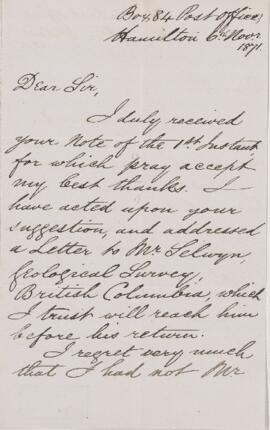 Box 84 Post Office,
Hamilton 6th Novr.
1871.
Dear Sir,
I duly received
your Note of the 1st Instant,
for which pray accept
my best thanks. I
have acted upon your
suggestion, and addressed
a Letter to Mr Selwyn,
Geological Survey,
British Columbia, which
I trust will reach him
before his return.
I regret very much
that I had not Mr